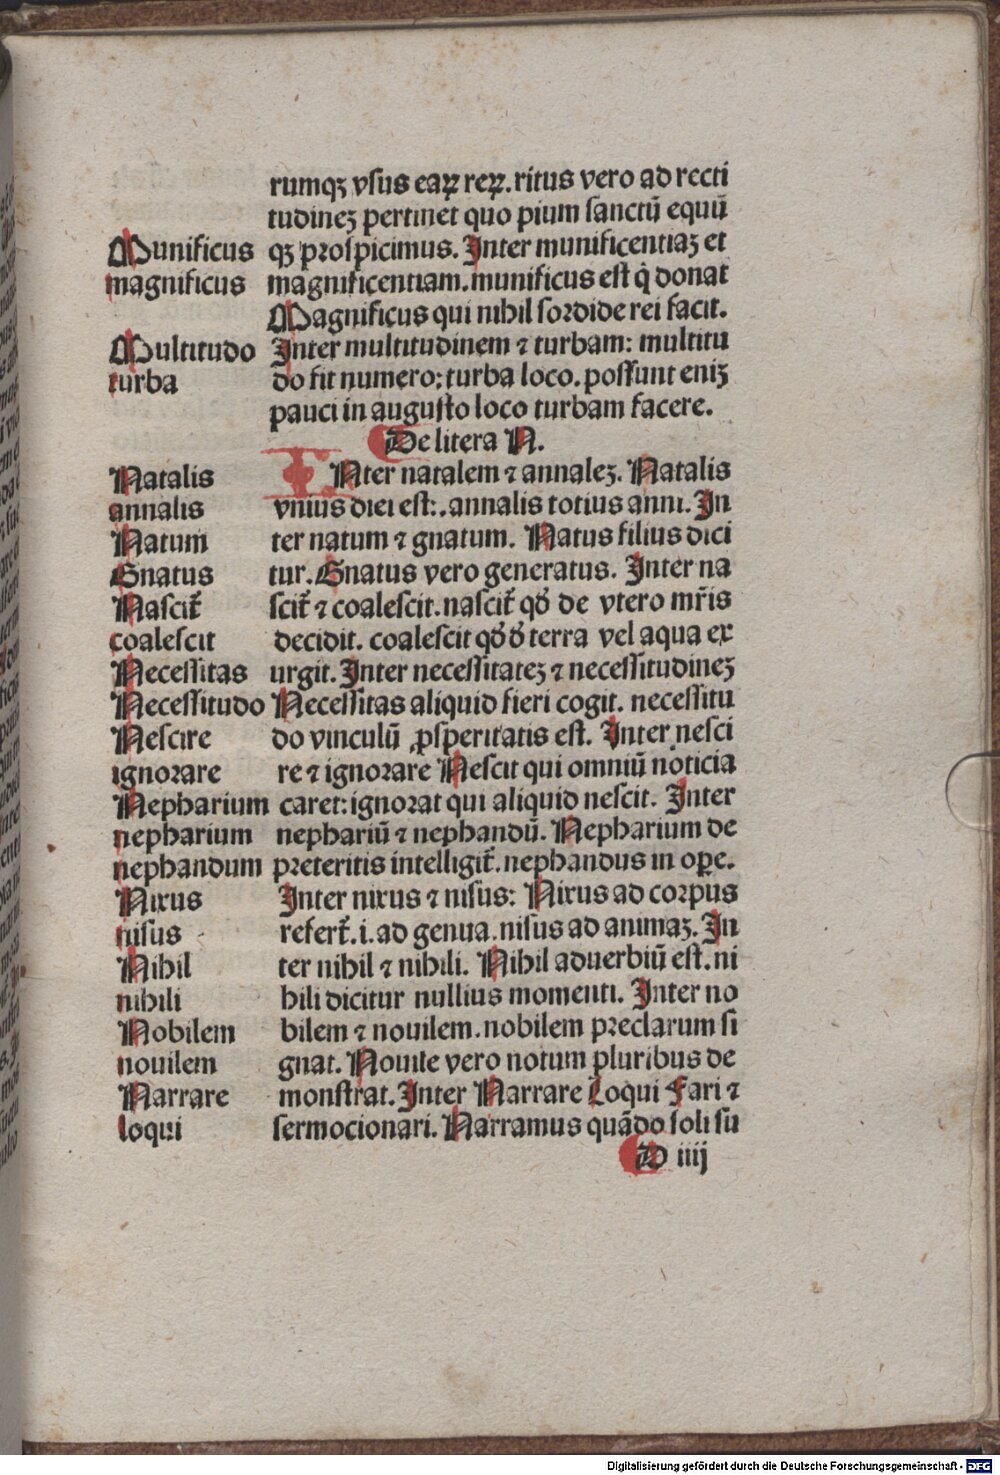 rumqꝫ vsus eaꝝ reꝝ. ritus vero ad recti
tudineꝫ pertinet quo pium sanctū equū
Munificus qꝫ prospicimus. Inter munificentiaꝫ et
magnificus magnificentiam. munificus est q̇ donat
Magnificus qui nihil sordide rei facit.
Multitudo Inter multitudinem ⁊ turbam: multitu
turba do fit numero: turba loco. possunt eniꝫ
pauci in augusto loco turbam facere.
De litera N.
Natalis INter natalem ⁊ annaleꝫ. Natalis
annalis vnius diei est:. annalis totius anni. In
Natum ter natum ⁊ gnatum. Natus filius dici
Gnatus tur. Gnatus vero generatus. Inter na
Nascit᷑ scit᷑ ⁊ coalescit. nascit᷑ qd̓ de vtero mr̄is
coalescit decidit. coalescit qd̓ d̓ terra vel aqua ex
Necessitas urgit. Inter necessitateꝫ ⁊ necessitudineꝫ
Necessitudo Necessitas aliquid fieri cogit. necessitu
Nescire do vinculū ꝓsperitatis est. Inter nesci
ignorare re ⁊ ignorare Nescit qui omniū noticia
Nepharium caret: ignorat qui aliquid nescit. Inter
nepharium nephariū ⁊ nephandū. Nepharium de
nephandum preteritis intelligit᷑. nephandus in oꝑe.
Nixus Inter nixus ⁊ nisus: Nixus ad corpus
nisus refert᷑. i. ad genua. nisus ad animaꝫ. In
Nihil ter nihil ⁊ nihili. Nihil aduerbiū est. ni
nihili hili dicitur nullius momenti. Inter no
Nobilem bilem ⁊ nouilem. nobilem preclarum si
nouilem gnat. Nouile vero notum pluribus de
Narrare monstrat. Inter Narrare Loqui Fari ⁊
loqui sermocionari. Narramus quādo soli su
D iiij
Digitalisierung gefördert durch die Deutsche Forschungsgemeinschaft - DFG